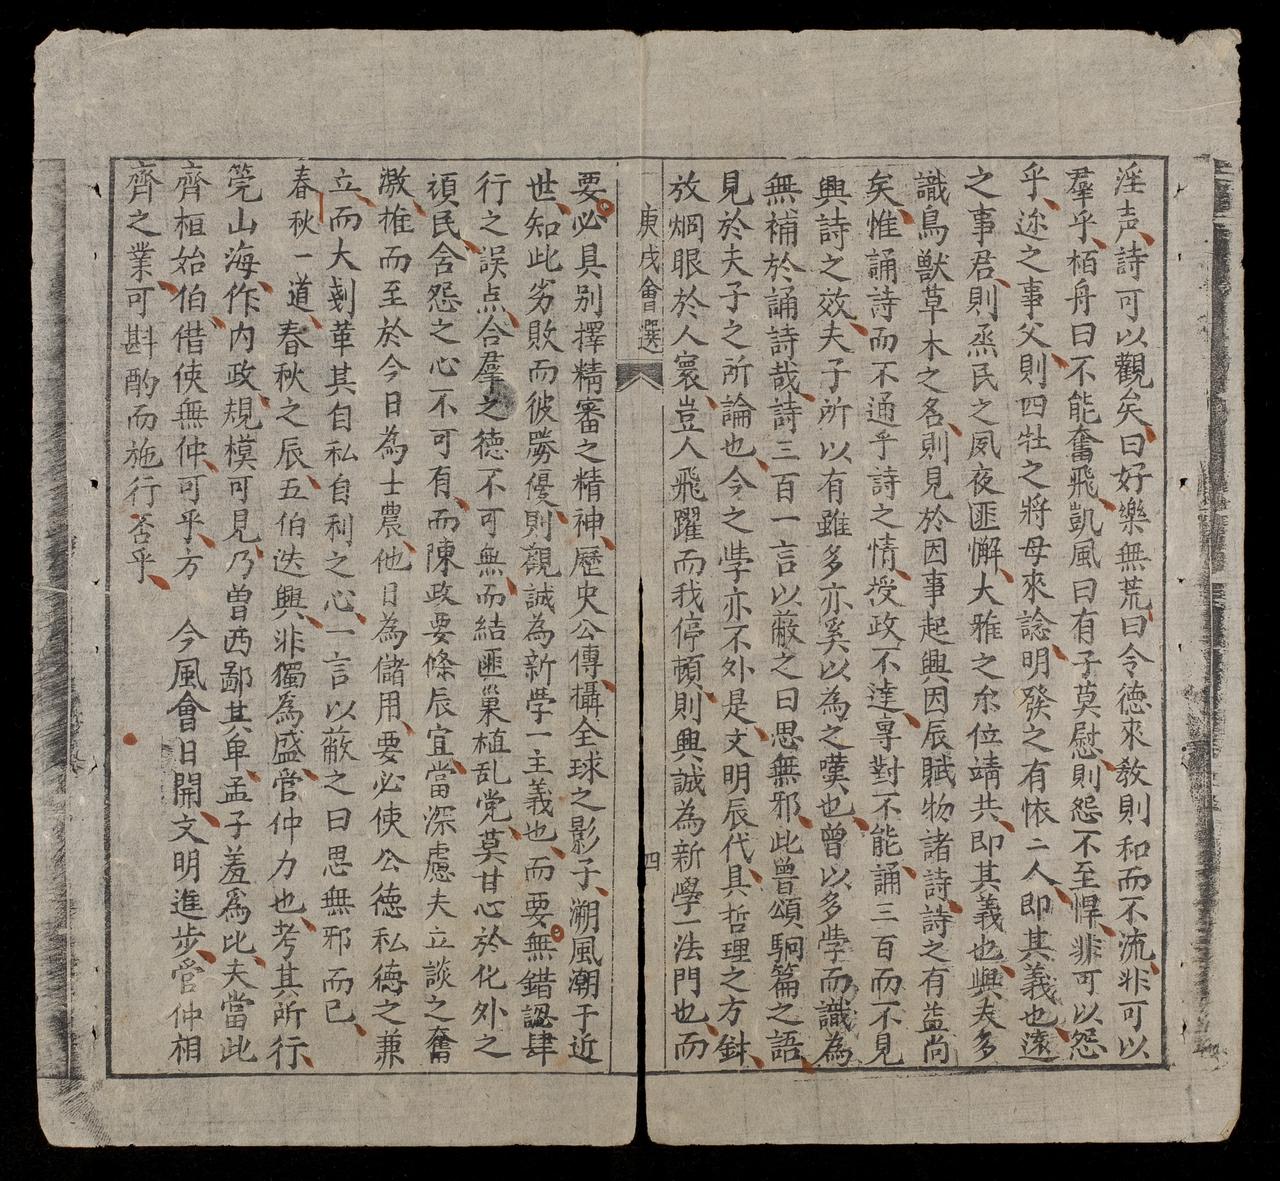 淫声詩可以觀矣曰好樂無荒曰令德來敎則和而不流非可以
羣乎栢舟曰不能奮飛凱風曰有子莫慰則怨不至悍非可以怨
乎迩之事父則四牡之將母來諗明發之有懷二人即其義也遠
之事君則烝民之夙夜匪懈大雅之尔位靖共即其義也與夫多
識鳥獸草木之名則見於因事起興因辰賦物諸詩詩之有益尚
矣惟誦詩而不通乎詩之情授政不達專對不能誦三百而不見
興詩之效夫子所以有雖多亦奚以為之嘆也曾以多學而識為
無補於誦詩哉詩三百一言以蔽之曰思無邪此曾頌駉篇之語
見於夫子之所論也今之學亦不外是文明辰代具哲理之方針
放烱眼於人寰豈人飛躍而我停頓則興誠為新學一法門也而
庚戌會選 四
要必具別擇精審之精神歷史公傳攝全球之影子溯風潮于近
世知此劣敗而彼勝優則觀誠為新学一主義也而要無錯認肆
行之誤点合羣之德不可無而結匪巢植乱党莫甘心於化外之
頑民含怨之心不可有而陳政要條辰宜當深慮夫立談之奮
激推而至於今日為士農他日為儲用要必使公德私德之兼
立而大剗革其自私自利之心一言以蔽之曰思無邪而已
春秋一道春秋之辰五伯迭興非獨為盛管仲力也考其所行
筦山海作內政規模可見乃曾西鄙其卑孟子羞為比夫當此
齊桓始伯借使無仲可乎方 今風會日開文明進步管仲相
齊之業可斟酌而施行否乎